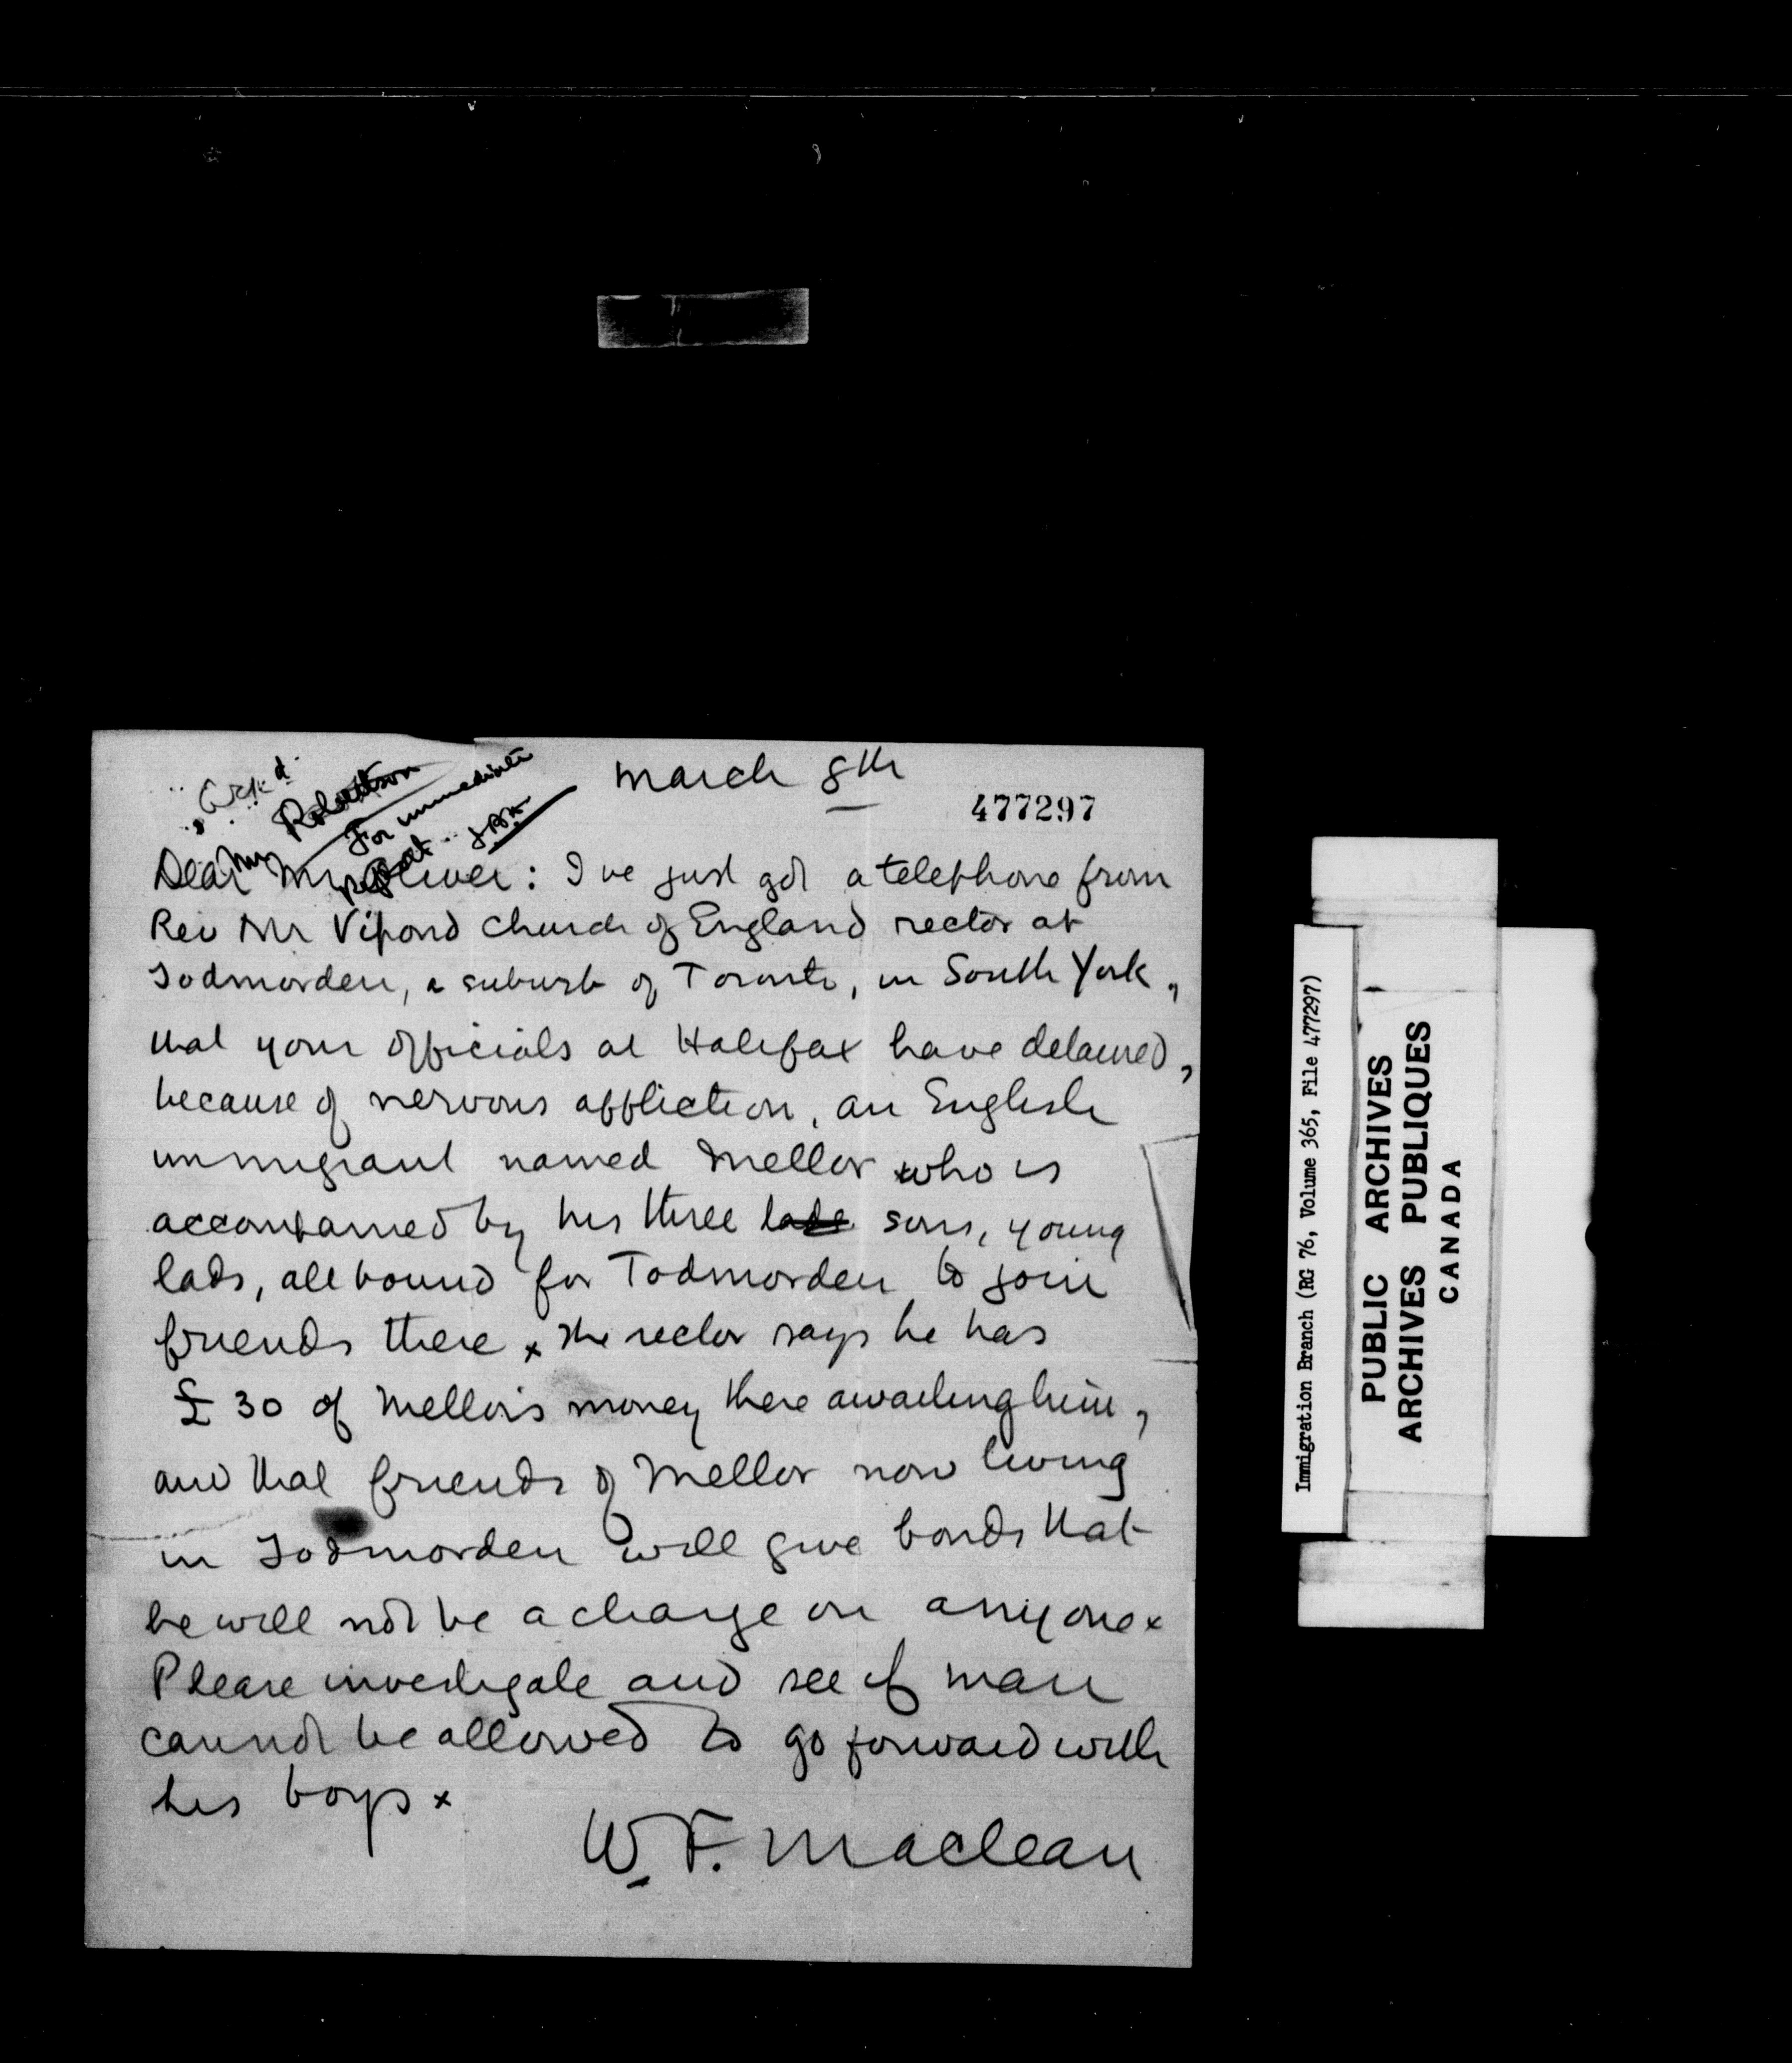 Ack'd.
Mr Robertson
For immediate
report
March 8th
477297
Dear Mr Oliver: I've just got a telephone from
Rev Mr Vipond Church of England rector at
Todmorden, a suburb of Toronto, in South York,
that your officials at Halifax have detained,
because of nervous affliction, an English
immigrant named Mellor who is
accompanied by his three lads sons, young
lads, all bound for Todmorden to join
friends there x The rector says he has
£30 of Mellor's money there awaiting him,
and that friends of Mellor now living
in Todmorden will give bonds that
he will not be a charge on anyone x
Please investigate and see if man
cannot be allowed to go forward with
his boys x
W. F. Maclean
Immigration Branch (RG 76, Volume 365, File 477297)
PUBLIC ARCHIVES
ARCHIVES PUBLIQUES
CANADA